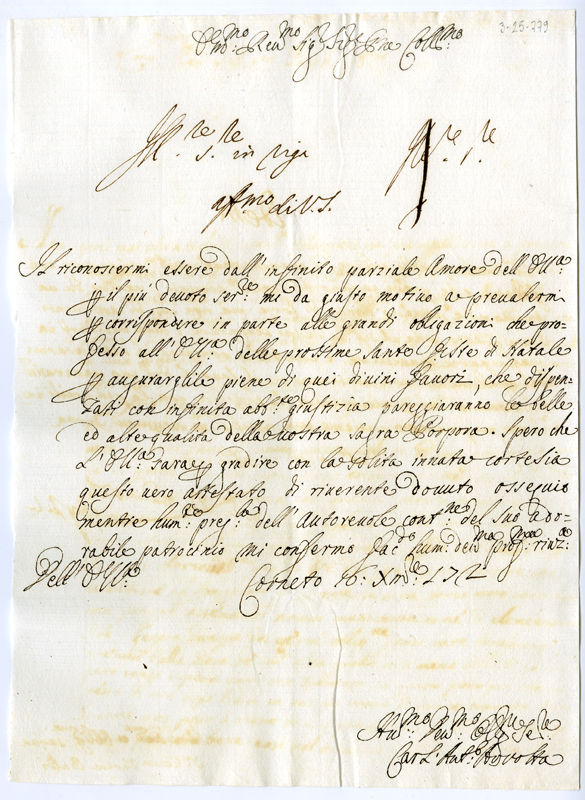 3-25-779
Em:mo Reu:mo Sig:r Sig:r Pne Coll:mo
in
aff:mo di V.S.
Il riconoscermi essere dall'infinito parziale Amore dell'Em:a
il più devoto ser:e mi da giusto motivo a prevalermi
corrispondere in parte alle grandi obligazioni che pro-
fesso all'Em:a delle prossime sante feste di Natale
augurargliele piene di quei divini favori, che dispen-
zati con infinita giustizia pareggiaranno le belle
ed alte qualità della vostra sagra Porpora. Spero che
L'Em:a sara gradire con la solita innata cortesia
questo vero attestato di riverente dovuto ossequio
mentre hum:te preg:la dell'Autorevole cont:ne del suo ado-
rabile patrocinio mi confermo fac:do hum:
Dell'Em:a
Corneto 16: Xmre 172
Hu:mo Deu:mo Obl:mo Se:re
Carl'Ant:o Avvolta